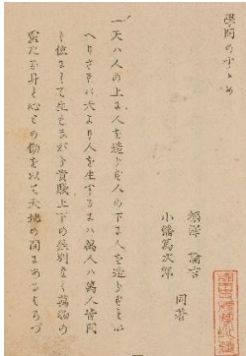 學問のすゝめ
福澤諭吉
小幡篤次郎 同著
一天ハ人の上に人を造らず人の下に人を造らずと云
へりされバ天より人を生ずるにハ萬人ハ萬人皆同
じ位にして生れながら貴賤上下の差別なく萬物の
靈たる身と心との働を以て天地の間にあるよろづ